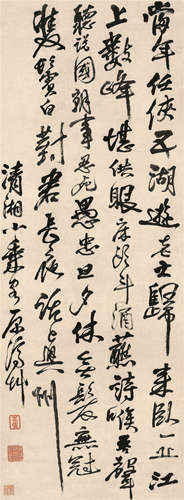 當年任俠五湖遊老去歸來臥一丘江
上數峰堪供眼床頭斗酒蘸詩喉吞聲
聽說國朝事忍死愚忠旦夕休無髮無冠
雙鬢白對君長夜話興州
清湘小乘客原濟草